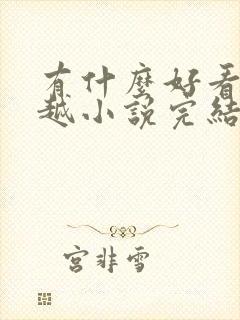 有什麼好看
越小說完結
宮非雪